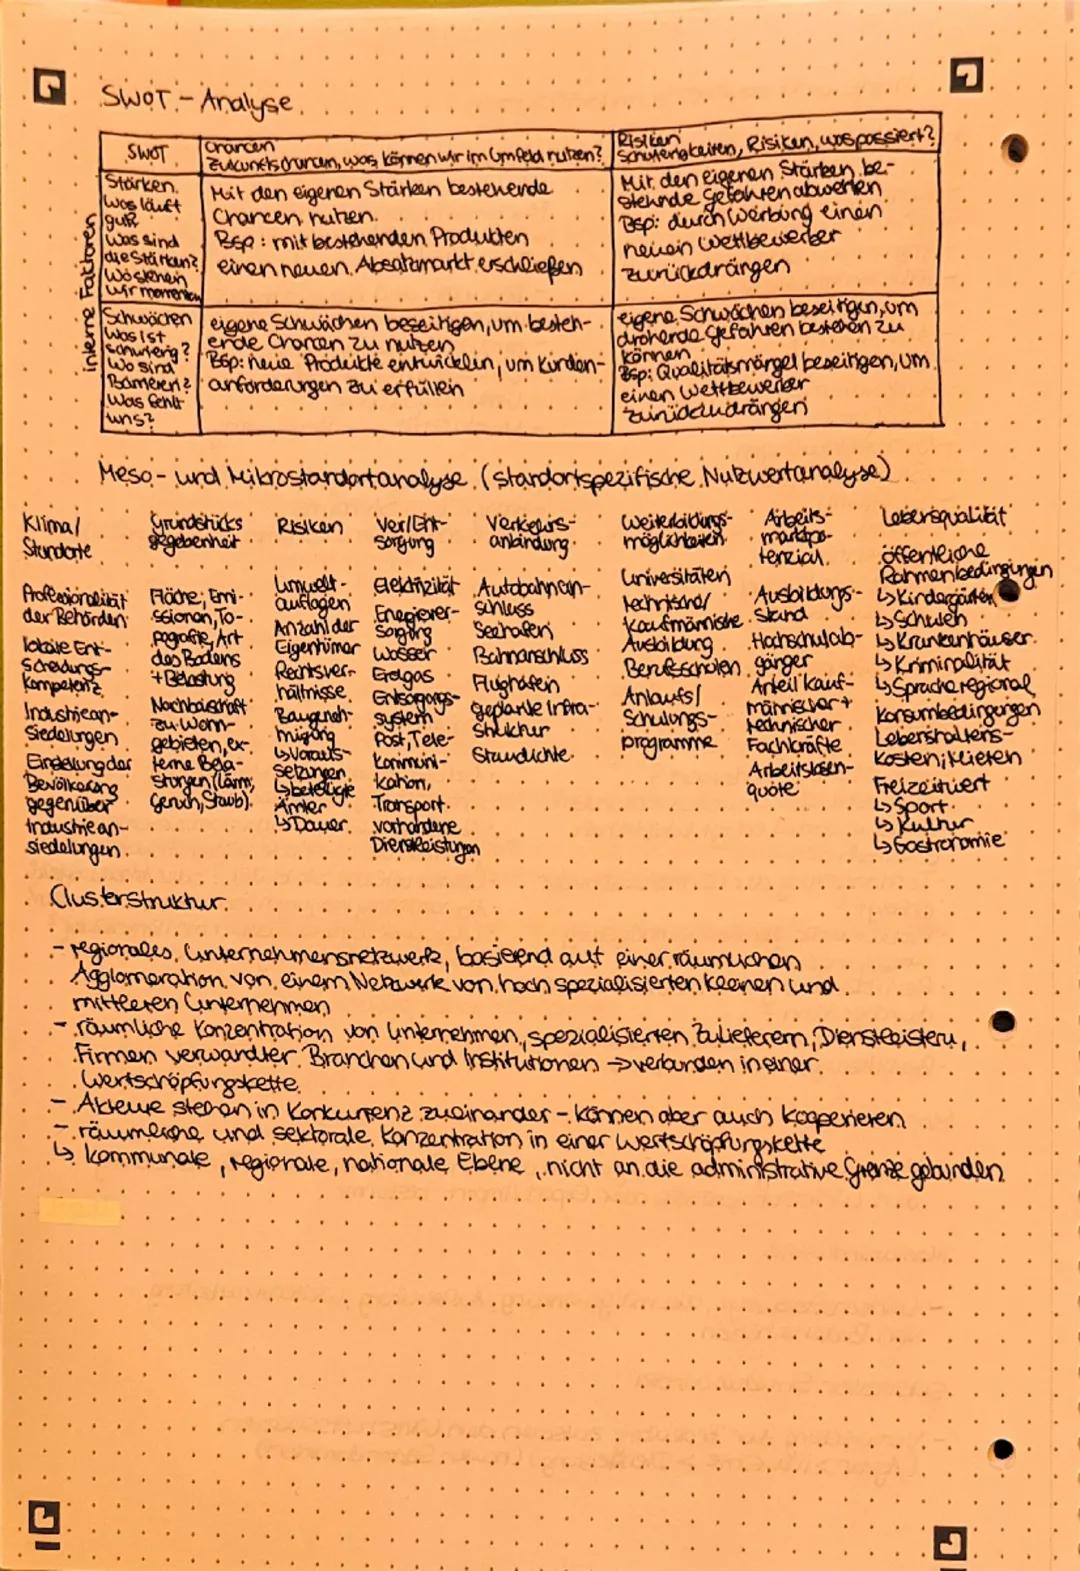 SWOT - Analyse
SWOT
Chancen
Zukunftschancen, was können wir im Umfeld nutzen?
Risiken
Schwierigkeiten, Risiken, was passiert?
interne Faktoren
Stärken
Was läuft
gut?
Was sind
die Stärken?
Wo stehen
wir momentan
Mit den eigenen Stärken bestehende
Chancen nutzen.
Bsp: mit bestehenden Produkten
einen neuen Absatzmarkt erschließen
Mit den eigenen Stärken be-
stehnde Gefahren abwehren
Bsp: durch Werbung einen
neuen Wettbewerber
zurückdrängen
Schwächen
Was ist
schwierig?
Wo sind
Barrieren?
Was fehlt
uns?
eigene Schwächen beseitigen, um besteh-
ende Chancen zu nutzen
Bsp: neue Produkte entwickeln, um Kunden-
anforderungen zu erfüllen
eigene Schwächen beseitigen, um
drohende Gefahren bestehen zu
können
Bsp: Qualitätsmängel beseitigen, um
einen Wettbewerber
zurückzudrängen
Meso- und Mikrostandortanalyse (standortspezifische Nutzwertanalyse)
Klima/
Standorte
Professionalität
der Behörden
lokale Ent-
scheidungs-
kompetenz
Industriean-
siedelungen
Einstellung der
Bevölkerung
gegenüber
Industriean-
siedelungen.
Grundstücks
gegebenheit
Fläche, Emi-
ssionen, To-
pografie, Art
des Bodens
+ Belastung
Nachbarschaft
zu Wohn-
gebieten, ex-
terne Bela-
stungen (Lärm,
Geruch, Staub).
Risiken
Umwelt-
auflagen
Anzahl der
Eigentümer
Rechtsver-
hältnisse
Baugeneh-
migung
↳ Voraus-
setzungen
↳ beteiligte
Ämter
↳ Dauer
Ver/Ent-
sorgung
Elektrizität
Energiever-
sorgung
Wasser
Erdgas
Entsorgungs-
system
Post, Tele-
kommuni-
kation,
Transport
vorhandene
Dienstleistungen
Verkehrs-
anbindung
Autobahnan-
schluss
Seehafen
Bahnanschluss
Flughäfen
geplante Infra-
struktur
Staudichte
Weiterbildungs-
möglichkeiten
Universitäten
technische/
kaufmännische
Ausbildung
Berufsschulen
Anlaufs/
Schulungs-
programme
Arbeits-
marktpo-
tenzial
Ausbildungs-
stand
Hochschulab-
gänger
Anteil kauf-
männischer +
technischer
Fachkräfte
Arbeitslosen-
quote
Lebensqualität
öffentliche
Rahmenbedingungen
↳ Kindergärten
↳ Schulen
↳ Krankenhäuser
↳ Kriminalität
↳ Sprache regional
Konsumbedingungen
Lebenshaltens-
kosten, Mieten
Freizeitwert
↳ Sport
↳ Kultur
↳ Gastronomie
Clusterstruktur
- regionales Unternehmensnetzwerk, basierend auf einer räumlichen
Agglomeration von einem Netzwerk von hoch spezialisierten kleinen und
mittleren Unternehmen
- räumliche Konzentration von Unternehmen, spezialisierten Zulieferern, Dienstleistern,
Firmen verwandter Branchen und Institutionen → verbunden in einer
Wertschöpfungskette
- Akteure stehen in Konkurrenz zueinander - können aber auch kooperieren
- räumliche und sektorale Konzentration in einer Wertschöpfungskette
↳ kommunale, regionale, nationale Ebene, nicht an die administrative Grenze gebunden